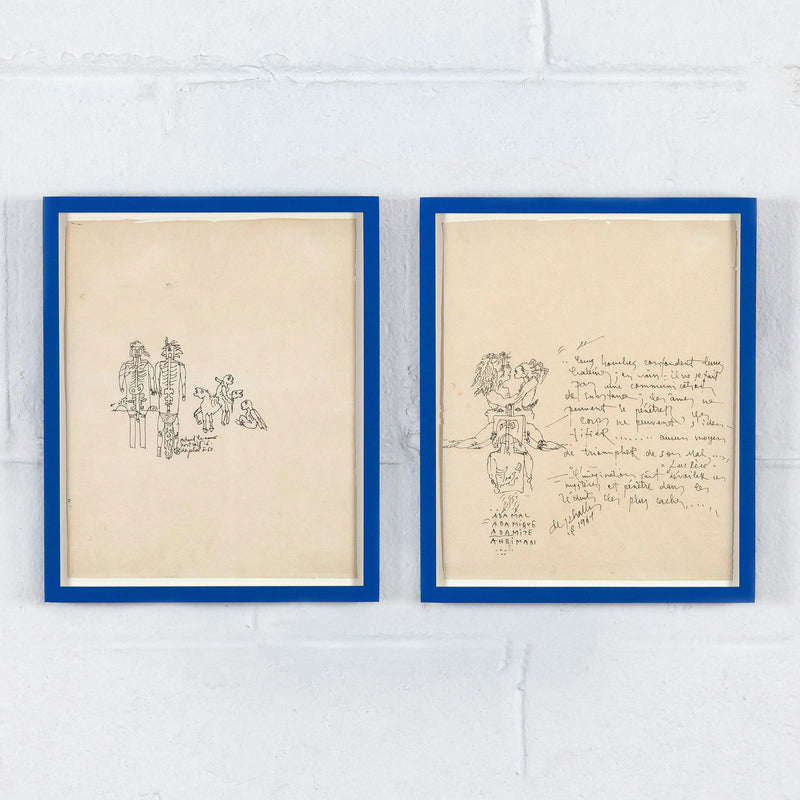 .. leurs bouches confondent leurs
haleines ; en vain ! il ne se fait
pas une communication
de substance ; les âmes ne
peuvent se pénétrer les
corps ne peuvent s'iden-
tifier ....... aucun moyen
de triompher de son mal ....,
- Lucrèce -
L'imagination sait dévoiler ces
mystères et pénètre dans les
réduits les plus cachés, ....
1967
ADAMAL
ADAMIQUE
ADAMITE
AHRIMAN